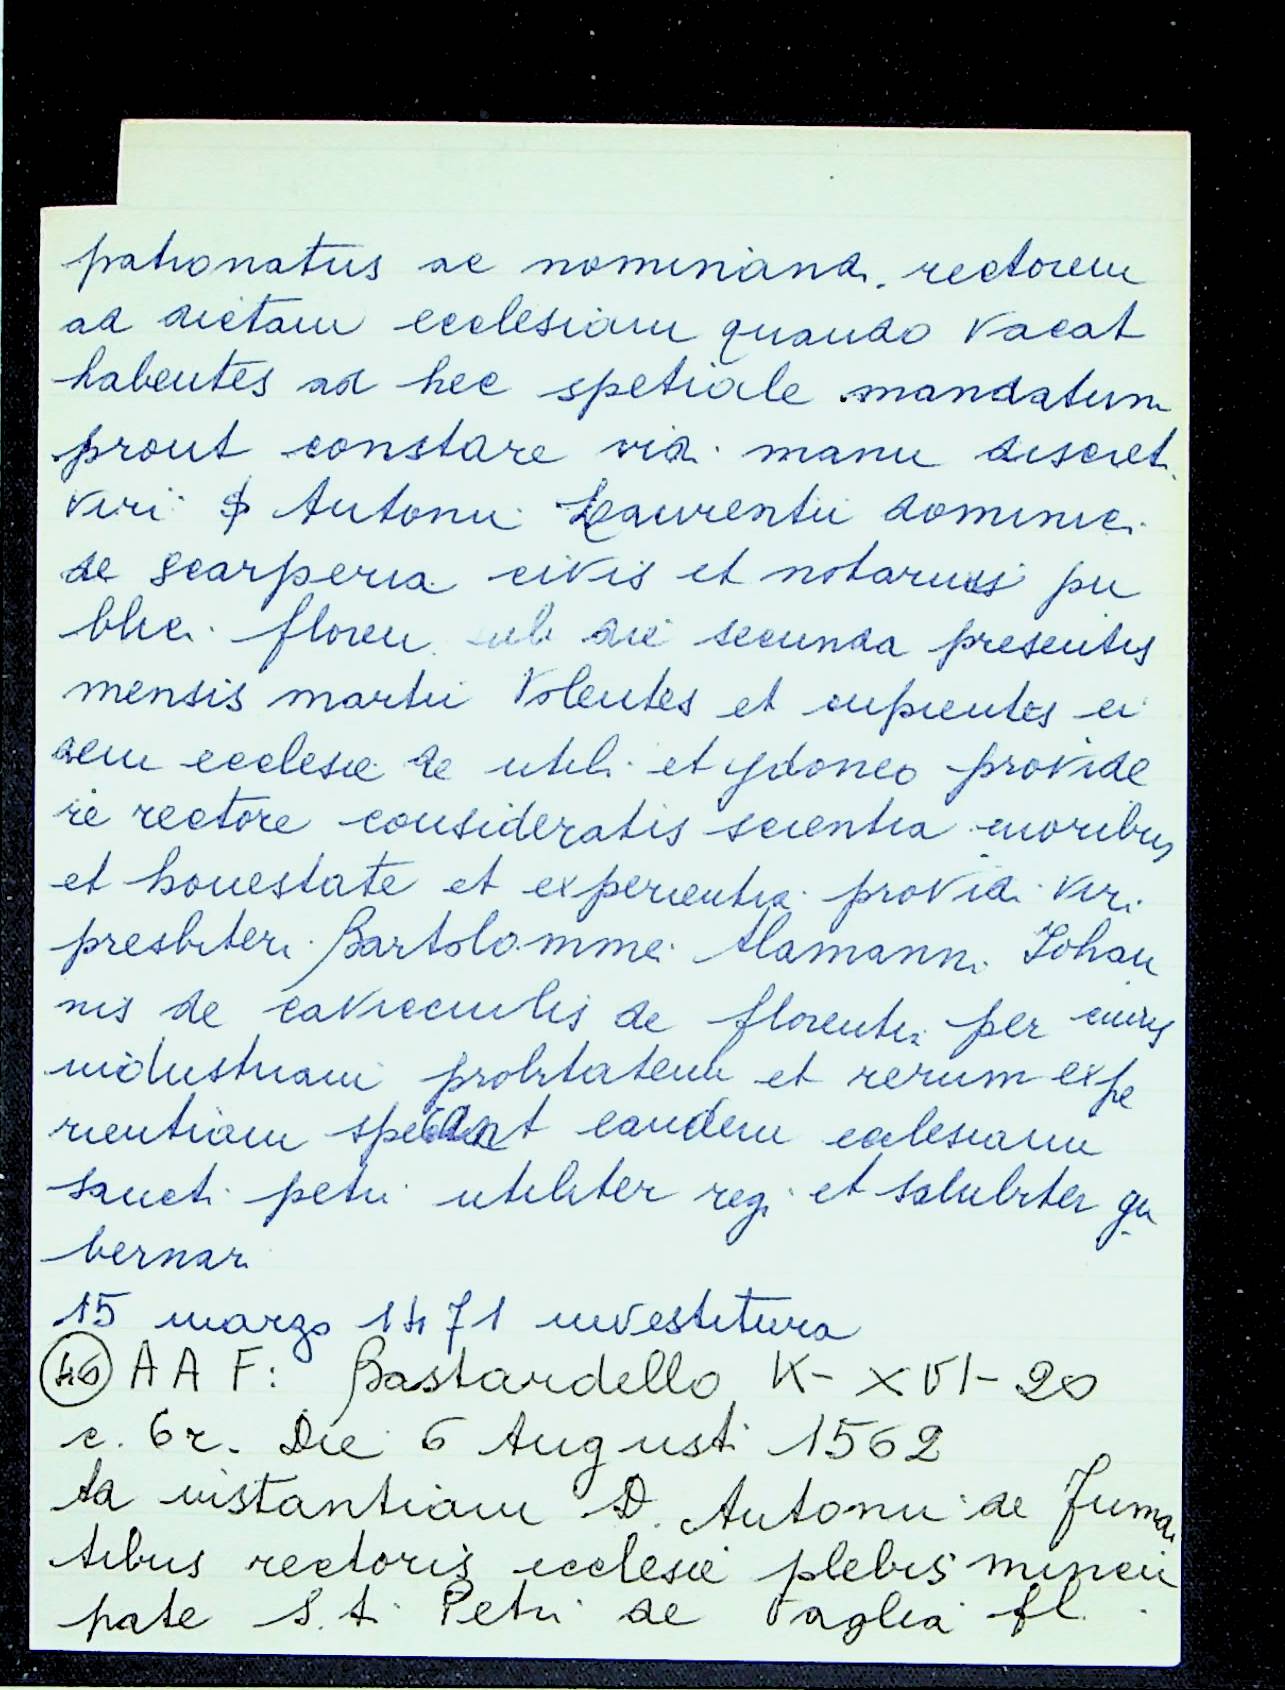 patronatus ac nominandi rectorem
ad dictam ecclesiam quando vacat
habentes ad hec spetiale mandatum
prout constare vidi manu discreti
viri S Antonii Laurentii dominici
de Scarperia civis et notarii pu
blici floren. sub die secunda presentis
mensis martii Volentes et cupientes ei
dem ecclesie de utili et ydoneo provide
re rectore consideratis scientia moribus
et honestate et experientia providi viri
presbiteri Bartolommei Alamanni Johan
nis de cavicciulis de florentia per cuius
industriam probitatem et rerum expe
rientiam sperant eandem ecclesiam
sancti petri utiliter regi et salubriter gu
bernari
15 marzo 1471 investitura
46 AAF: Bastardello K-XVI-20
c. 6r. Die 6 Augusti 1562
Ad instantiam D. Antonii de Juman
tibus rectoris ecclesie plebis muncu
pate S.ti Petri de Vaglia fl.